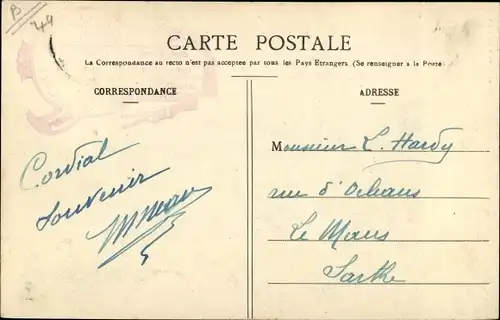 B
'44
CARTE POSTALE
La Correspondance au recto n'est pas acceptée par tous les Pays Etrangers (Se renseigner à la Poste)
CORRESPONDANCE
Cordial
souvenir
ADRESSE
Monsieur L. Hardy
rue d'Orléans
Le Mans
Sarthe